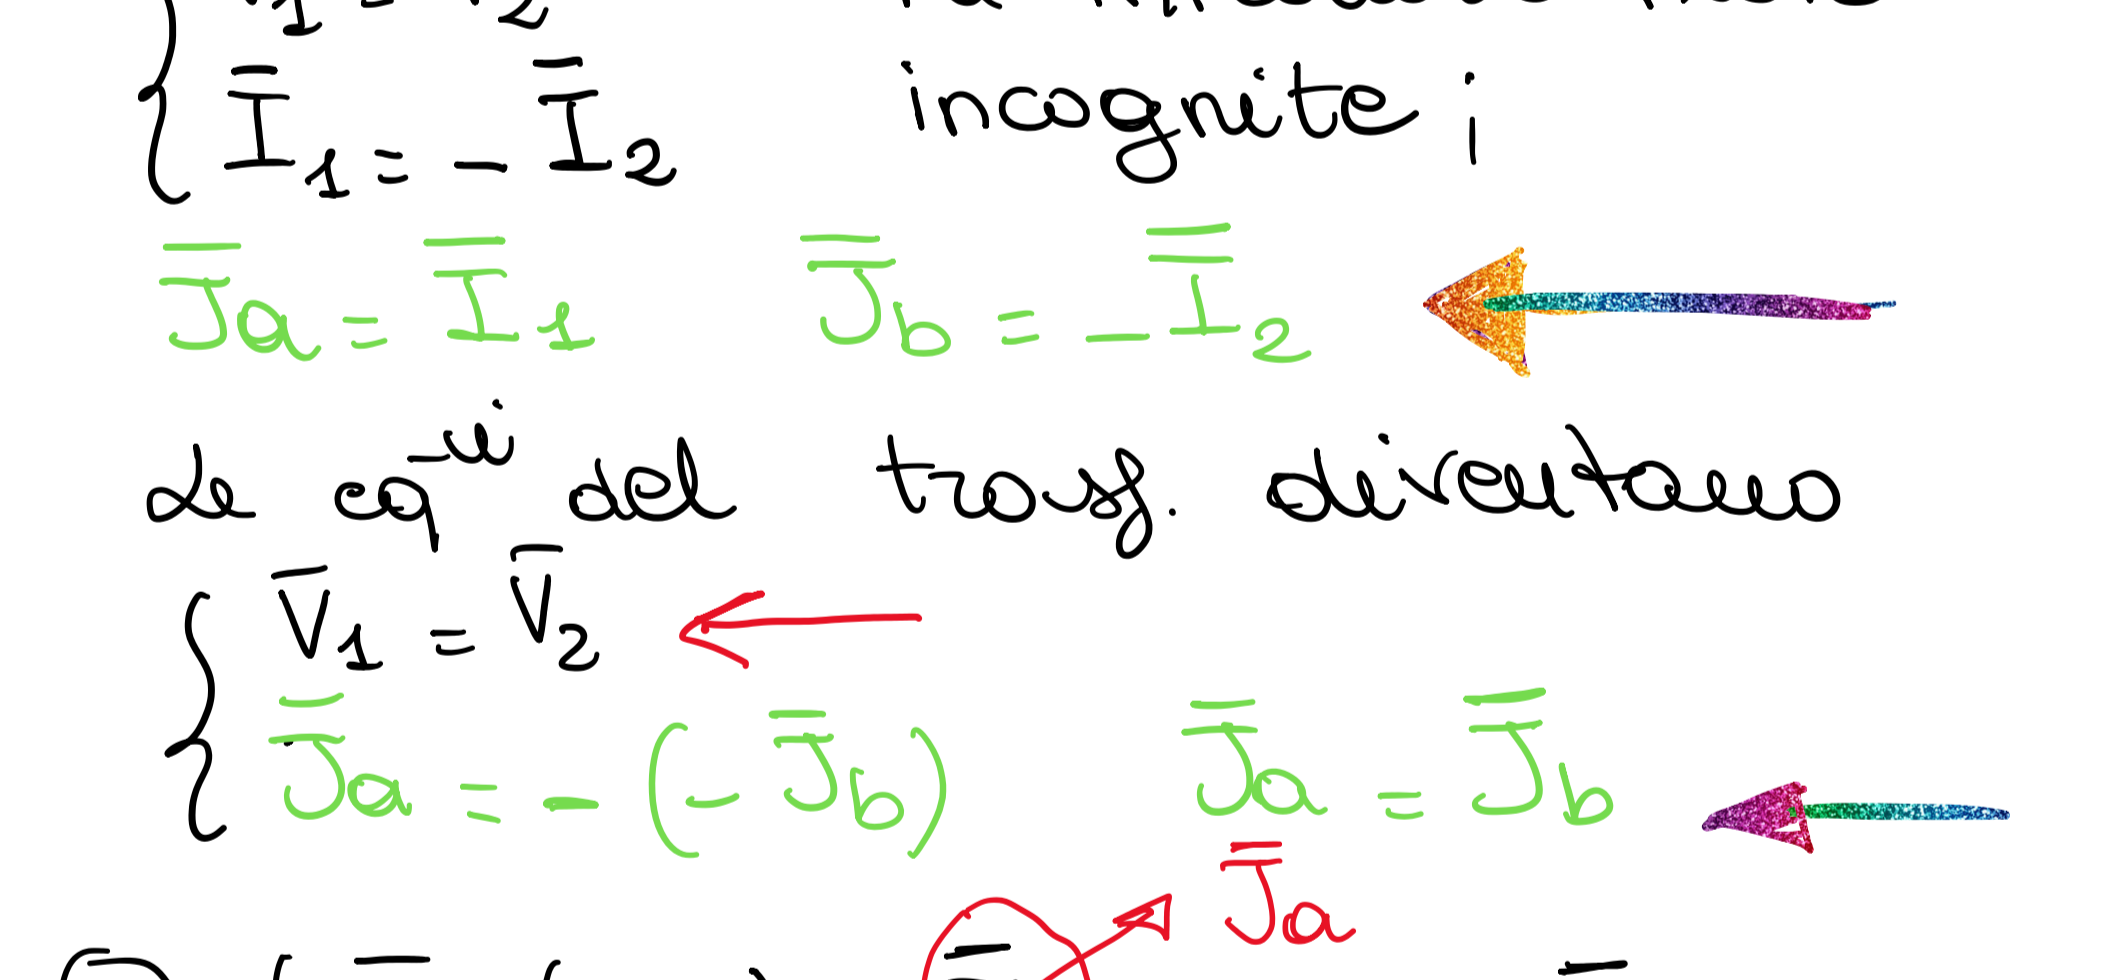 V̄1 = V̄2
Ī1 = - Ī2 incognite ;
J̄a = Ī1 J̄b = - Ī2
Le eq-ui del trasf. diventano
V̄1 = V̄2
J̄a = - (- J̄b) J̄a = J̄b
J̄a